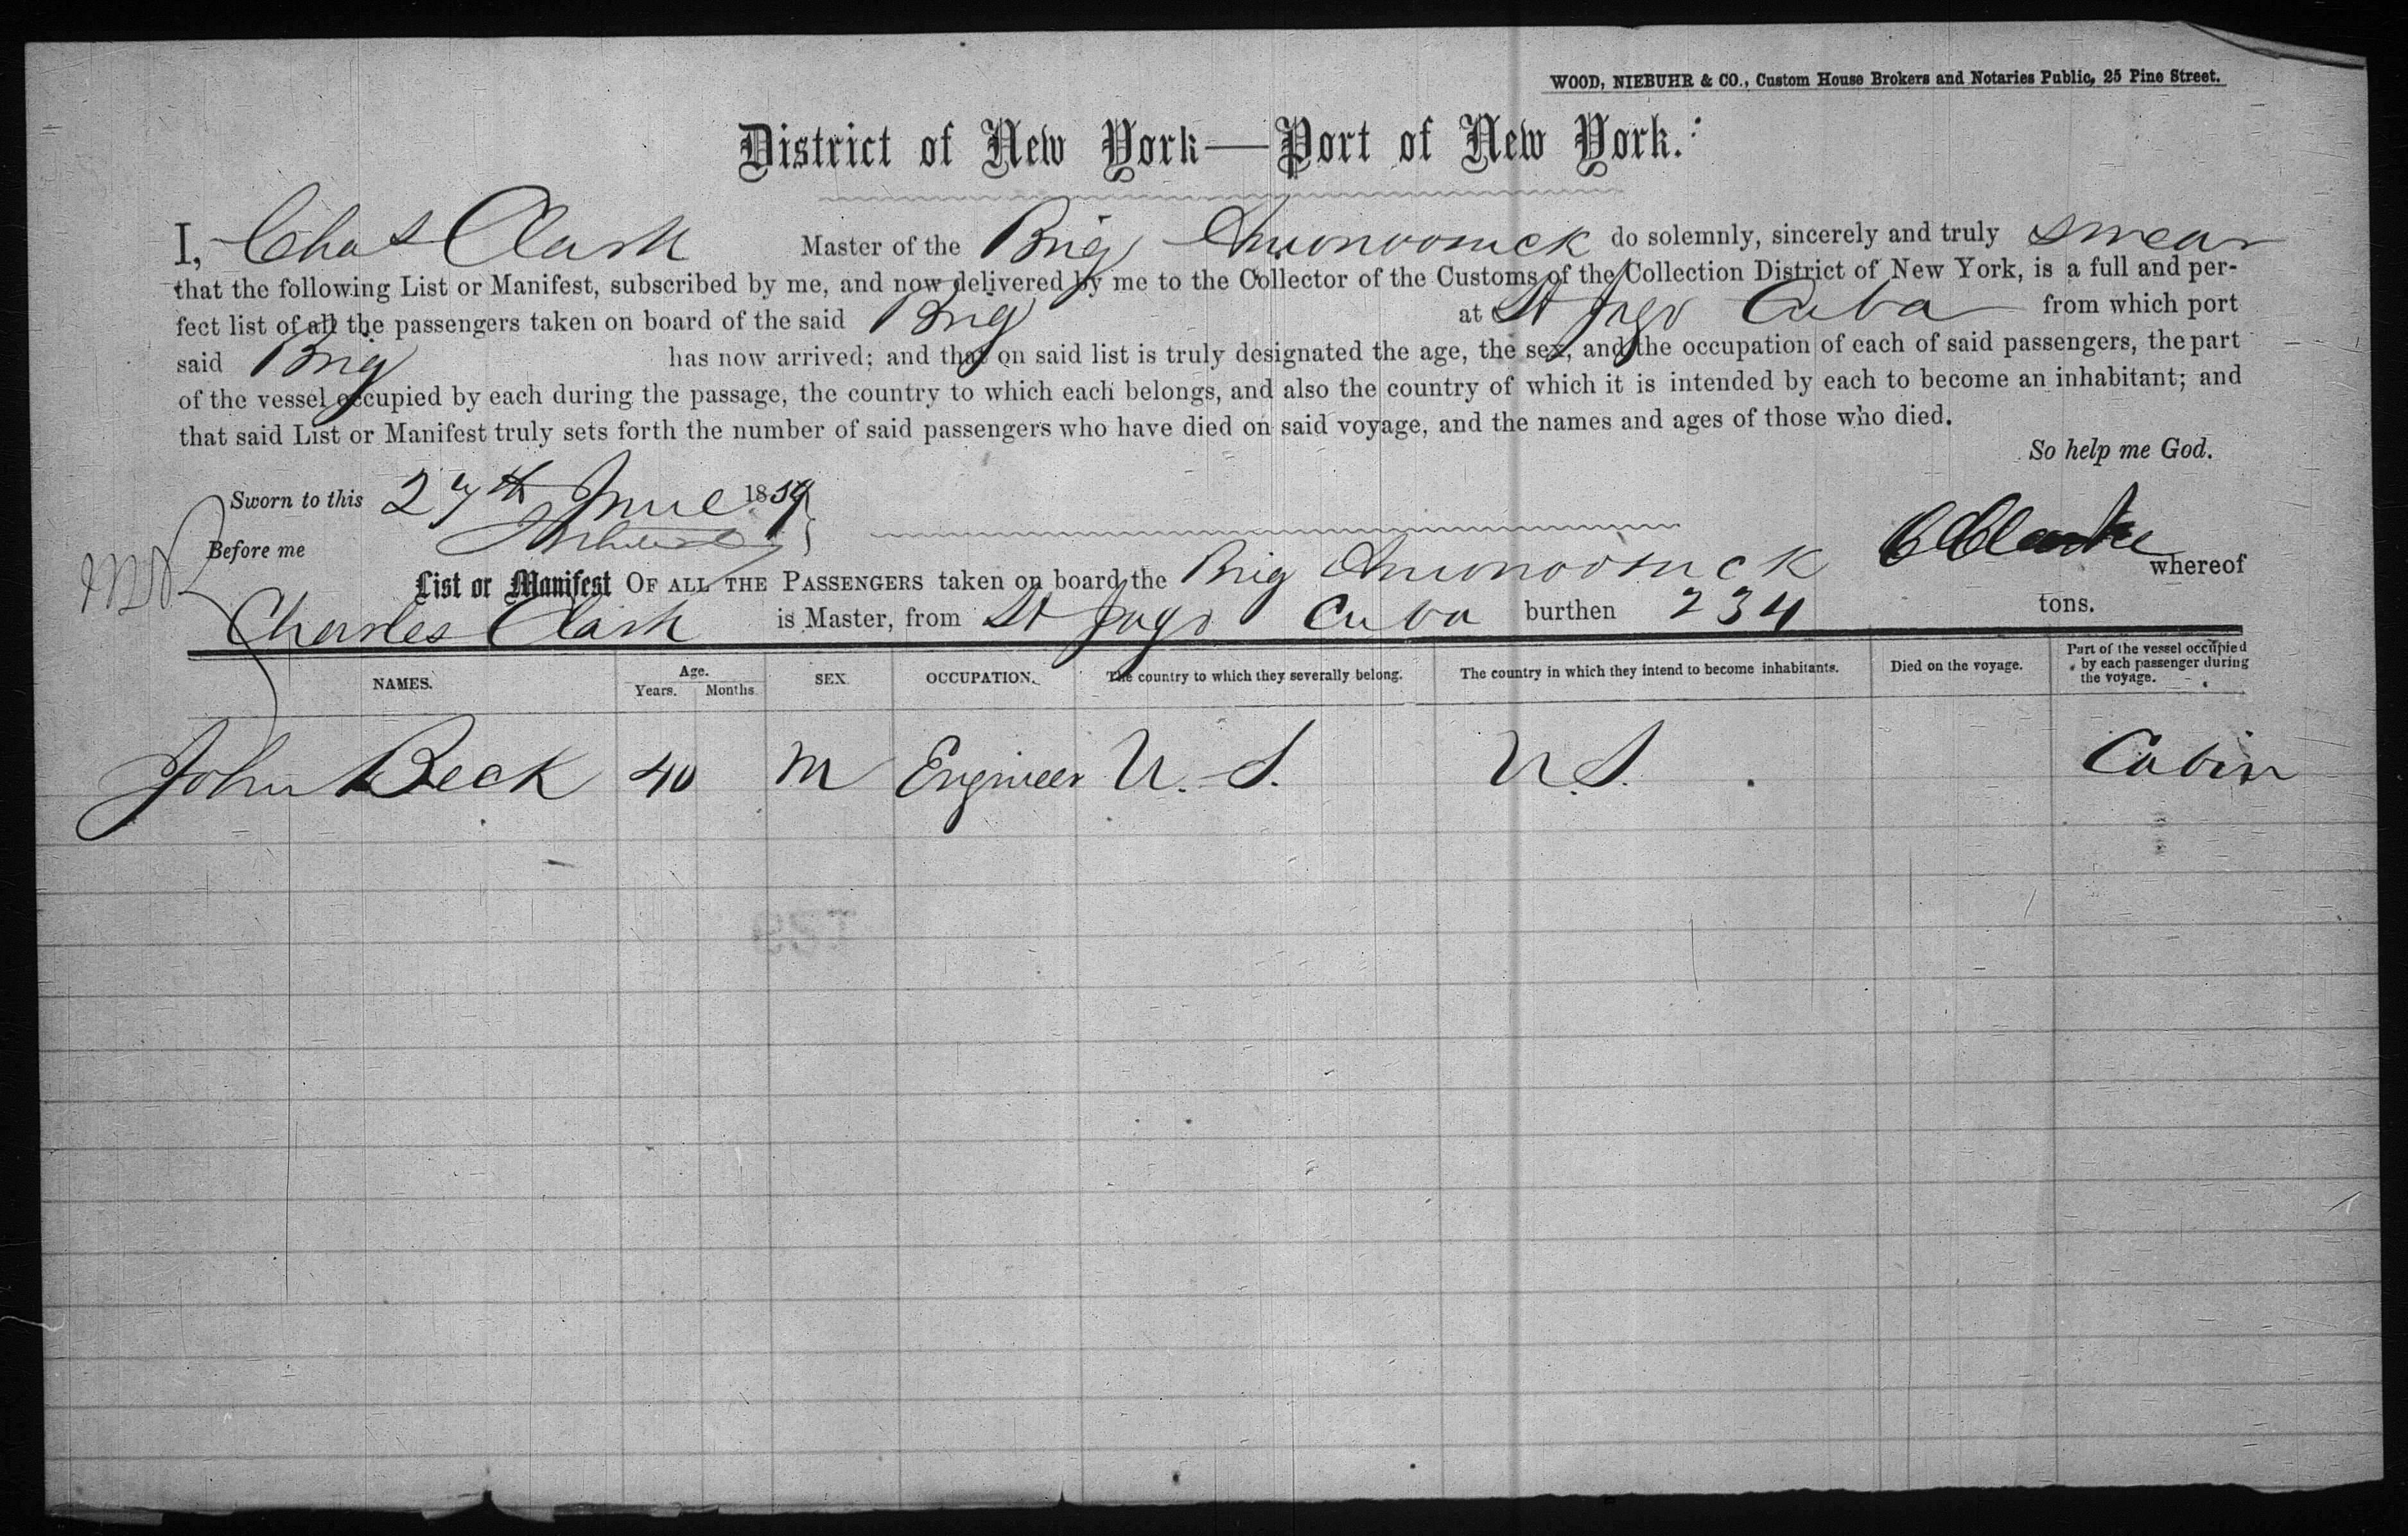 WOOD, NIEBUHR & CO., Custom House Brokers and Notaries Public, 25 Pine Street.
District of New York—Port of New York.
I, Chas Clark Master of the Brig Amonoosuck do solemnly, sincerely and truly swear
that the following List or Manifest, subscribed by me, and now delivered by me to the Collector of the Customs of the Collection District of New York, is a full and per-
fect list of all the passengers taken on board of the said Brig at St Jago Cuba from which port
said Brig has now arrived; and that on said list is truly designated the age, the sex, and the occupation of each of said passengers, the part
of the vessel occupied by each during the passage, the country to which each belongs, and also the country of which it is intended by each to become an inhabitant; and
that said List or Manifest truly sets forth the number of said passengers who have died on said voyage, and the names and ages of those who died.
So help me God.
Sworn to this 27th June 1859
Before me
C Clarke
List or Manifest OF ALL THE PASSENGERS taken on board the Brig Amonoosuck whereof
Charles Clark is Master, from St Jago Cuba burthen 234 tons.
NAMES. Age. Years. Months. SEX. OCCUPATION. The country to which they severally belong. The country in which they intend to become inhabitants. Died on the voyage. Part of the vessel occupied by each passenger during the voyage.
John Beck 40 M Engineer U.S. U.S. Cabin